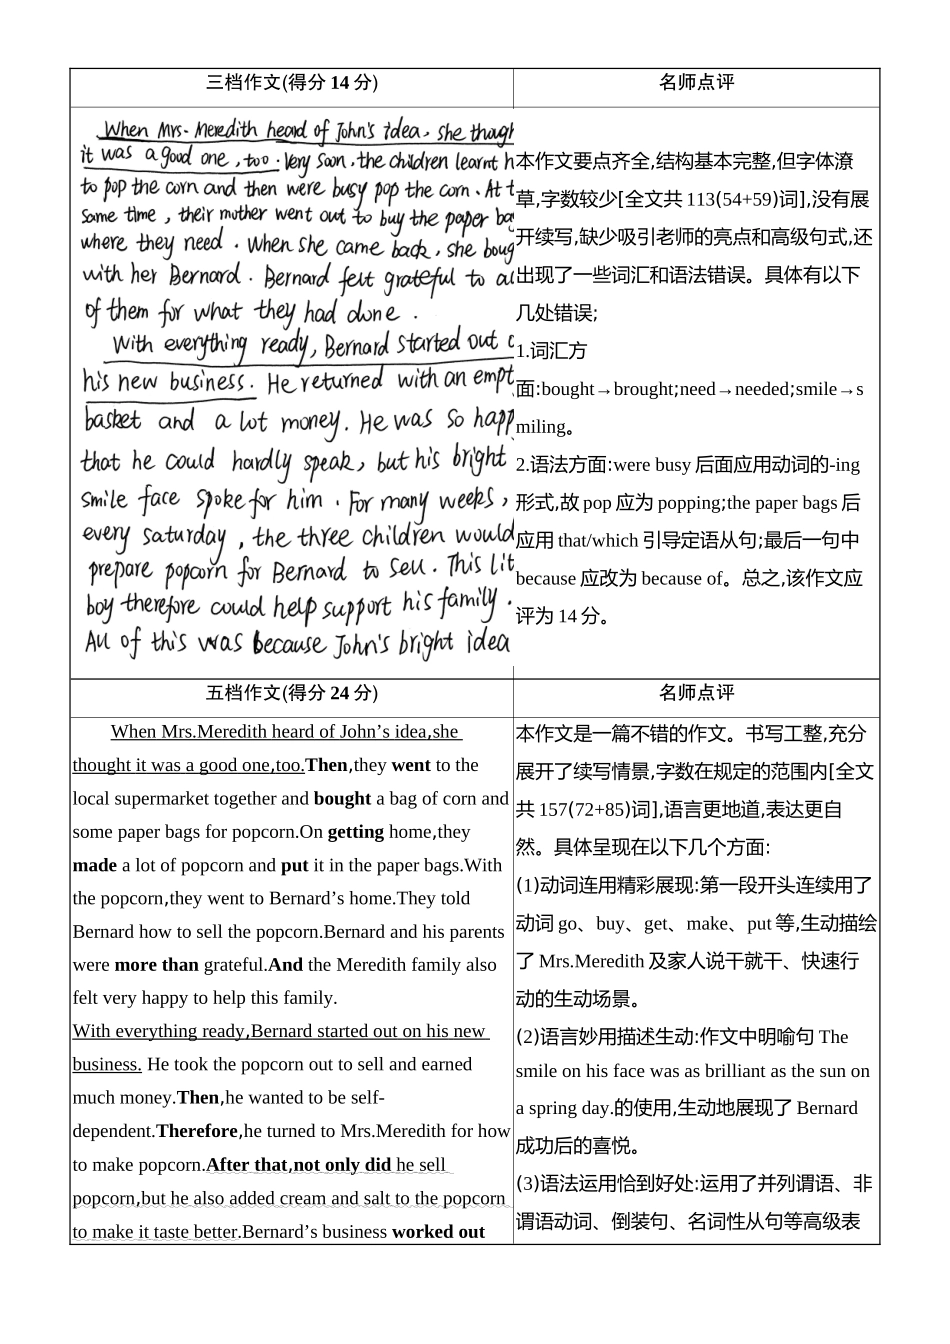 三档作文(得分 14 分)
名师点评
When Mrs. Meredith heard of John's idea, she
it was a good one, too. Very soon, the children learnt
to pop the corn and then were busy pop the corn. At
same time, their mother went out to buy the paper
where they need. When she came back, she
with her Bernard. Bernard felt grateful to
of them for what they had done.
With everything ready, Bernard started out
his new business. He returned with an
basket and a lot money. He was so
that he could hardly speak, but his bright
smile face spoke for him. For many weeks,
every saturday, the three children would
prepare popcorn for Bernard to sell. This
boy therefore could help support his family.
All of this was because John's bright idea
本作文要点齐全,结构基本完整,但字体潦
草,字数较少[全文共 113(54+59)词],没有展
开续写,缺少吸引老师的亮点和高级句式,还
出现了一些词汇和语法错误。具体有以下
几处错误;
1.词汇方
面:bought→brought;need→needed;smile→s
miling。
2.语法方面:were busy 后面应用动词的-ing
形式,故 pop 应为 popping;the paper bags 后
应用 that/which 引导定语从句;最后一句中
because 应改为 because of。总之,该作文应
评为 14 分。
五档作文(得分 24 分)
名师点评
When Mrs.Meredith heard of John’s idea,she
thought it was a good one,too.Then,they went to the
local supermarket together and bought a bag of corn and
some paper bags for popcorn.On getting home,they
made a lot of popcorn and put it in the paper bags.With
the popcorn,they went to Bernard’s home.They told
Bernard how to sell the popcorn.Bernard and his parents
were more than grateful.And the Meredith family also
felt very happy to help this family.
With everything ready,Bernard started out on his new
business. He took the popcorn out to sell and earned
much money.Then,he wanted to be self-
dependent.Therefore,he turned to Mrs.Meredith for how
to make popcorn.After that,not only did he sell
popcorn,but he also added cream and salt to the popcorn
to make it taste better.Bernard’s business worked out
本作文是一篇不错的作文。书写工整,充分
展开了续写情景,字数在规定的范围内[全文
共 157(72+85)词],语言更地道,表达更自
然。具体呈现在以下几个方面:
(1)动词连用精彩展现:第一段开头连续用了
动词 go、buy、get、make、put 等,生动描绘
了 Mrs.Meredith 及家人说干就干、快速行
动的生动场景。
(2)语言妙用描述生动:作文中明喻句 The
smile on his face was as brilliant as the sun on
a spring day.的使用,生动地展现了 Bernard
成功后的喜悦。
(3)语法运用恰到好处:运用了并列谓语、非
谓语动词、倒装句、名词性从句等高级表